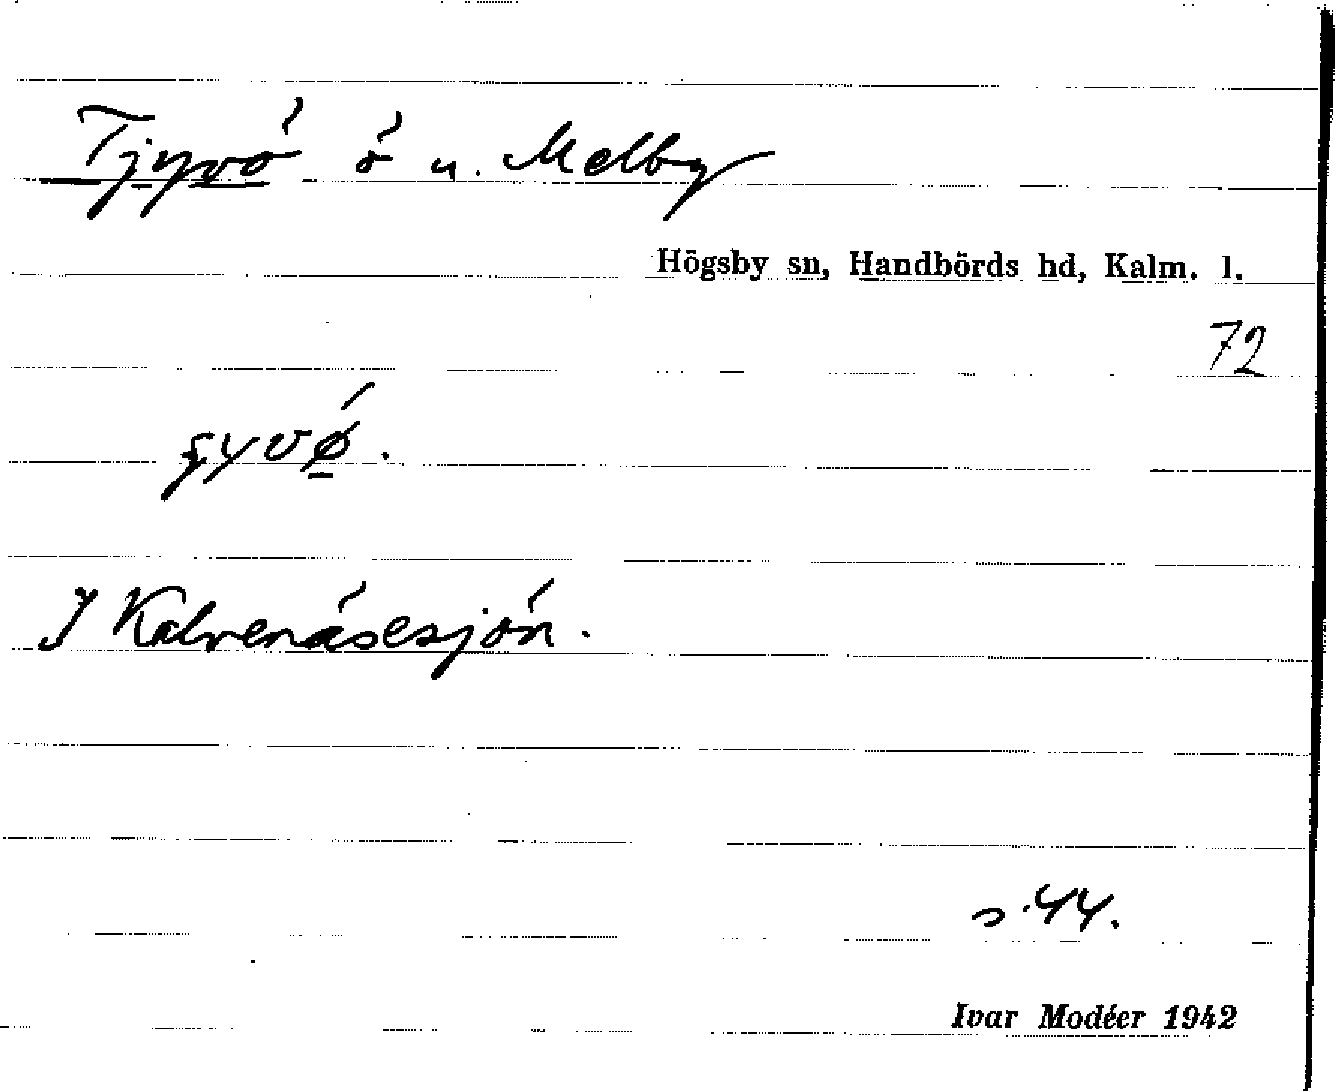 Tjyvö ö u. Melby
Högsby sn, Handbörds hd, Kalm. l.
72
I Kalvenäsesjön.
s. 44.
Ivar Modéer 1942